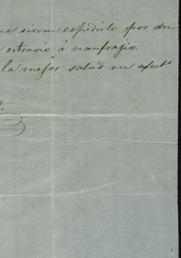 sirvan espedirlo por du
estravio ó naufragio.
la mejor salud su afecto